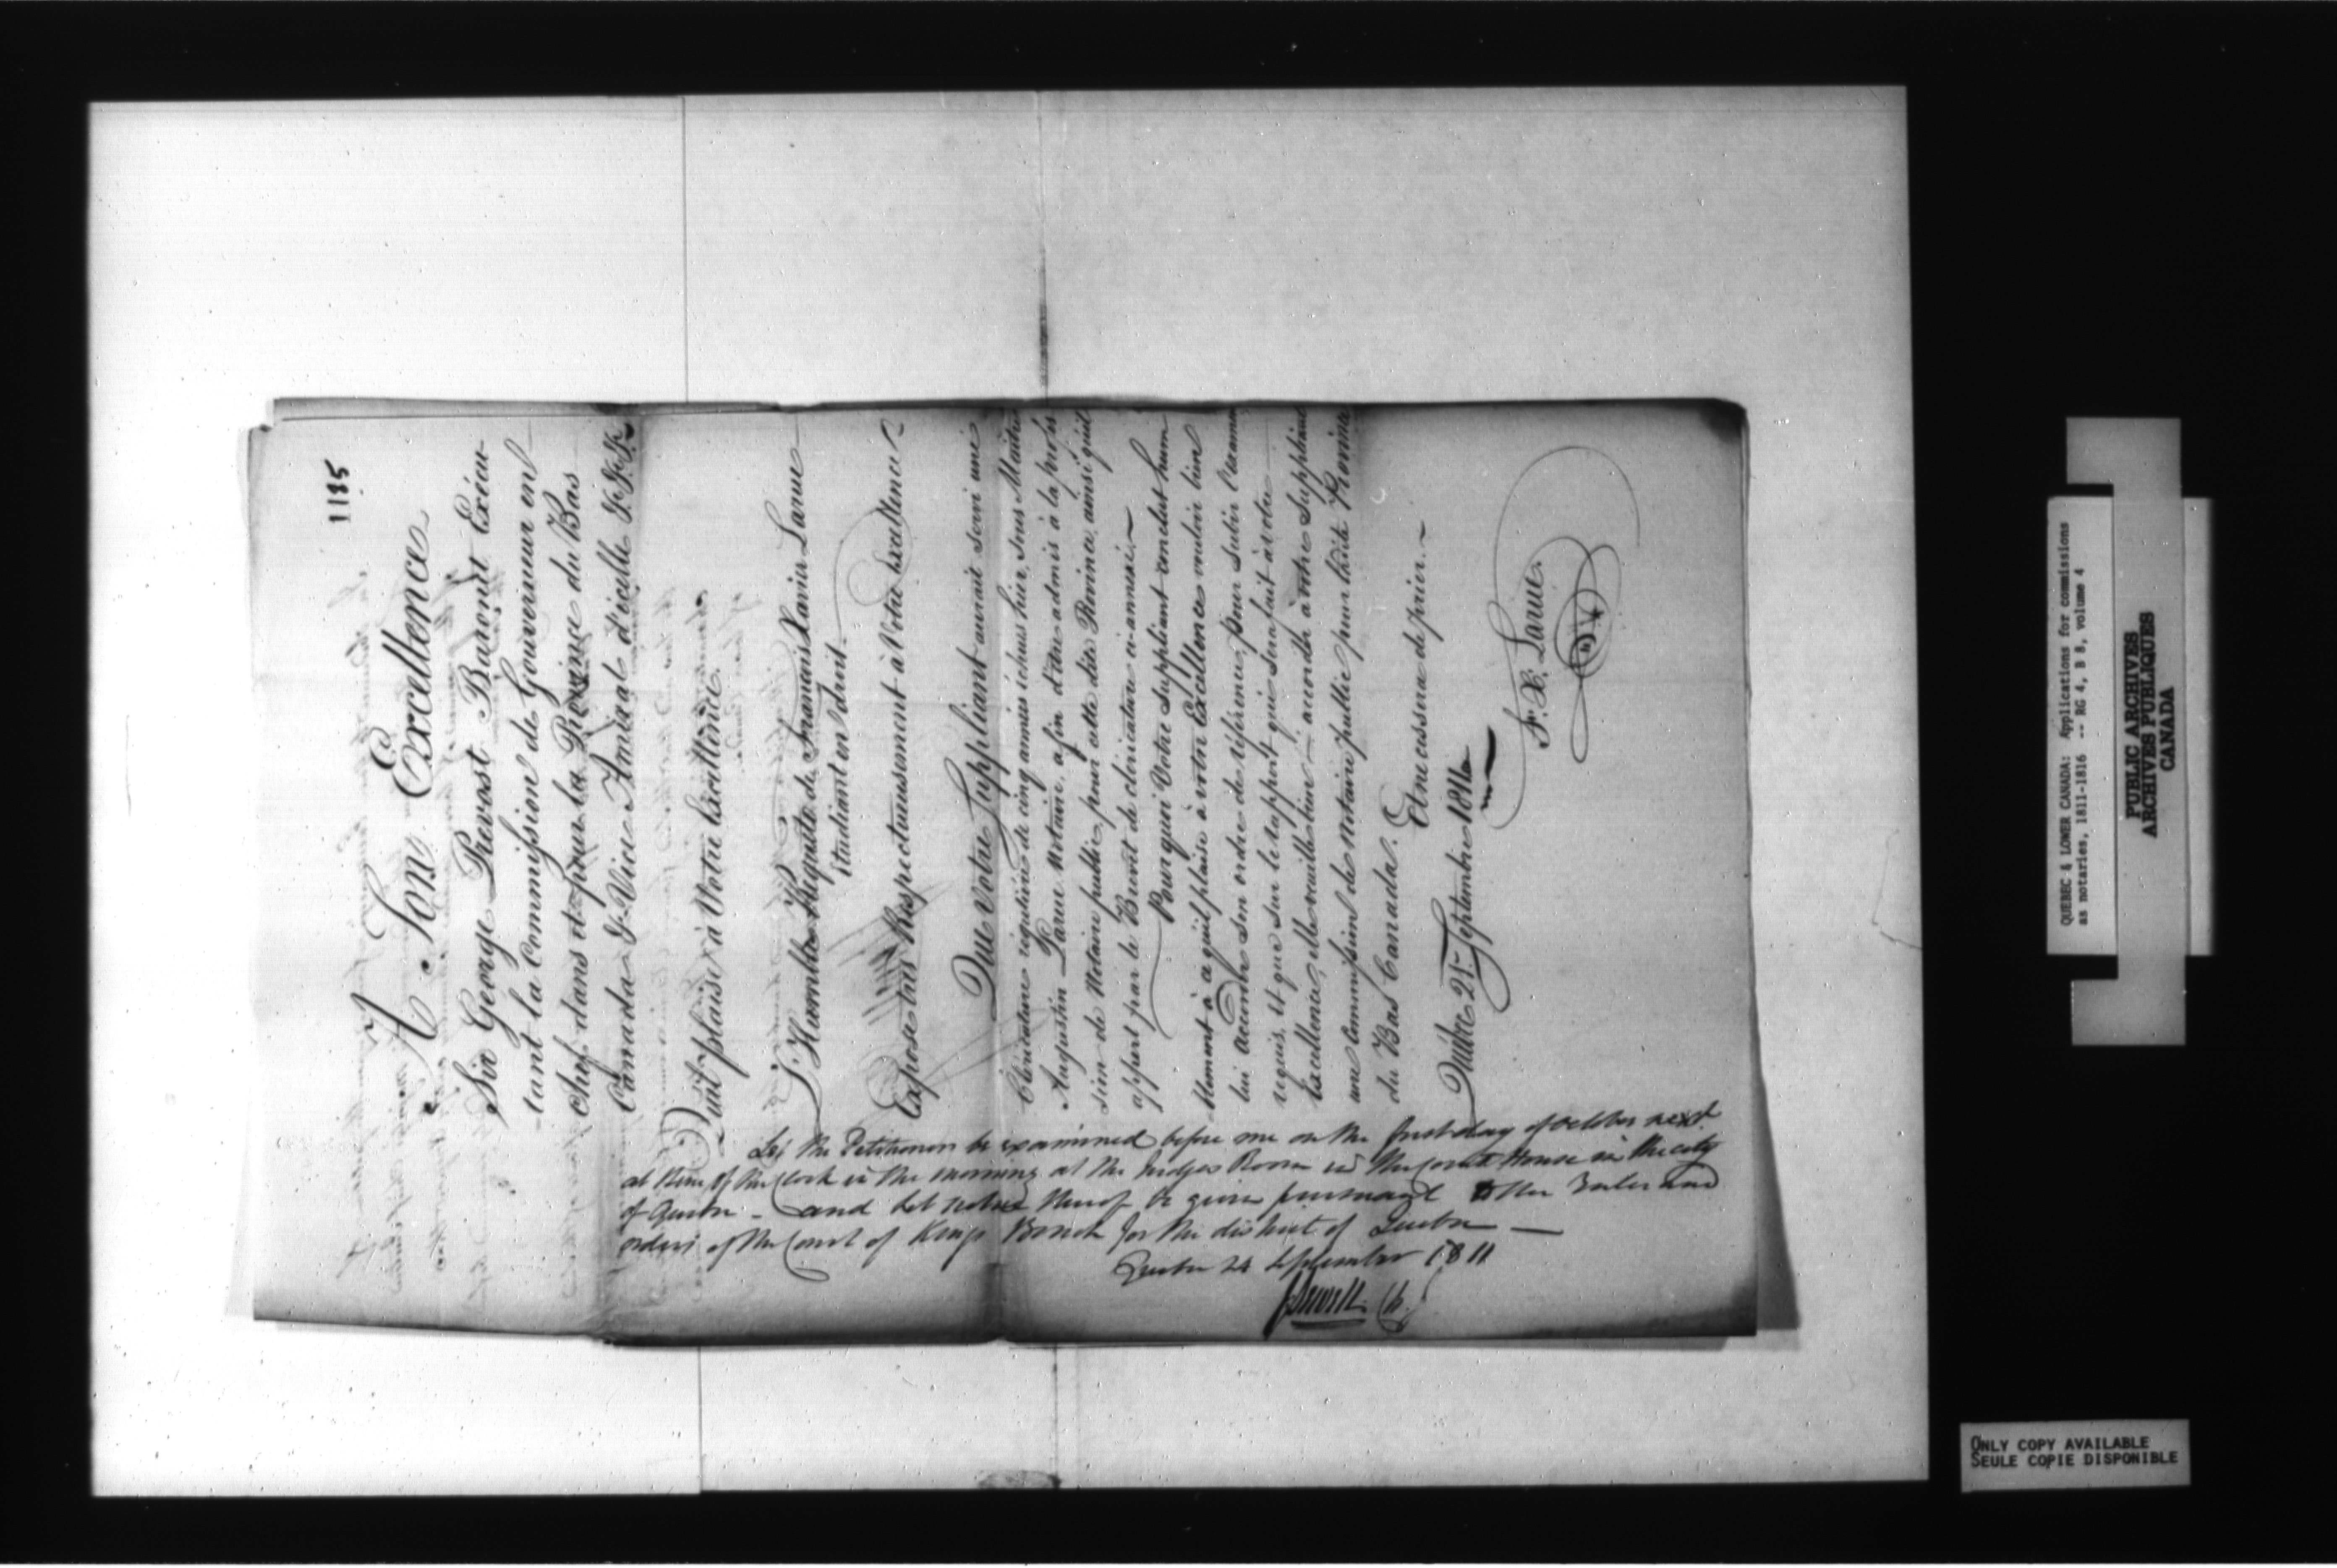 1185
A Son Excellence
Sir George Prevost Baronet Exécu-
-tant la Commission de Gouverneur en
chef dans et pour la Province du Bas
Canada & Vice Amiral d'icelle &c. &c. &c.
Qu'il plaise à Votre Excellence.
L'Humble Requête de François Xavier Larue
Etudiant en droit.
Expose très Respectueusement à Votre Excellence
Que Votre Suppliant aurait servi une
Cléricature régulière de cinq années échues hier, sous Maitre
Augustin Larue Notaire, afin d'être admis à la profes
sion de Notaire public, pour cette dite Province, ainsi qu'il
appert par le Brevet de cléricature ci-annexé.
Pourquoi Votre Suppliant conclut hum
blement à ce qu'il plaise à votre Excellence vouloir bien
lui accorder son ordre de référence, pour subir l'examen
requis, et que sur le rapport qui sera fait à votre
Excellence, elle veuille bien accorder à votre Suppliant
une Commission de Notaire public pour ladite Province
du Bas Canada.
Et ne cessera de prier.
Québec 21 Septembre 1811
F. X. Larue.
Let the Petitioner be examined before me on the first day of October next
at of the Clock in the morning at the Judges Room in the Court House in the city
of Quebec - and let notice thereof be given pursuant to the Rules and
orders of the Court of Kings Bench for the district of Quebec
Quebec 24 September 1811
J Sewell Ch. J
QUEBEC & LOWER CANADA: Applications for commissions
as notaries, 1811-1816 -- RG 4, B 8, volume 4
PUBLIC ARCHIVES
ARCHIVES PUBLIQUES
CANADA
ONLY COPY AVAILABLE
SEULE COPIE DISPONIBLE